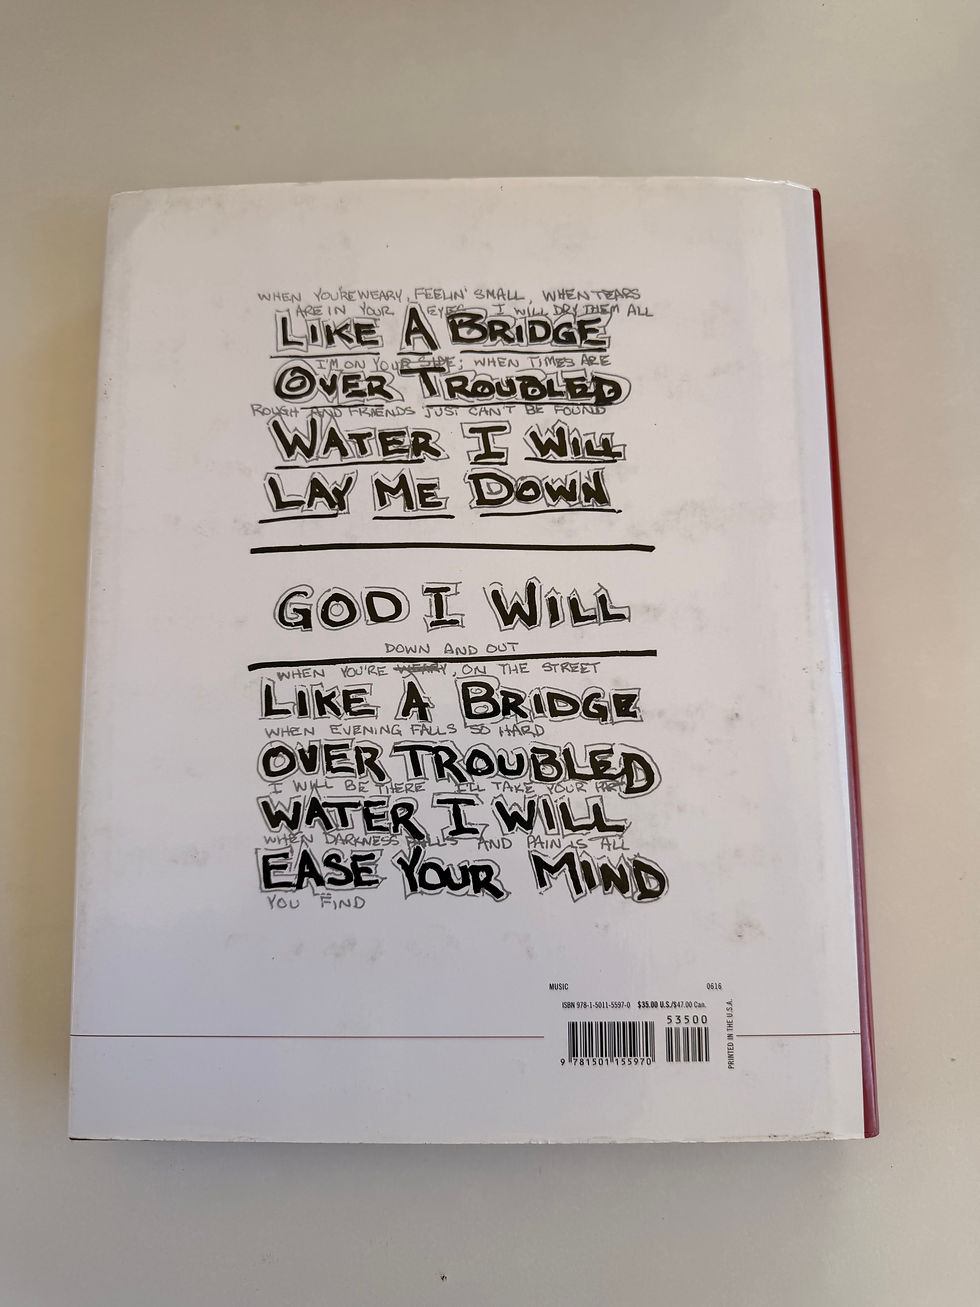 WHEN YOU'RE WEARY, FEELIN' SMALL, WHEN TEARS
ARE IN YOUR EYES I WILL DRY THEM ALL
LIKE A BRIDGE
I'M ON YOUR SIDE; WHEN TIMES ARE
OVER TROUBLED
ROUGH AND FRIENDS JUST CAN'T BE FOUND
WATER I WILL
LAY ME DOWN
GOD I WILL
DOWN AND OUT
WHEN YOU'RE WEARY, ON THE STREET
LIKE A BRIDGE
WHEN EVENING FALLS SO HARD
OVER TROUBLED
I WILL BE THERE I'LL TAKE YOUR PART
WATER I WILL
WHEN DARKNESS FALLS AND PAIN IS ALL
EASE YOUR MIND
YOU FIND
MUSIC 0616
ISBN 978-1-5011-5597-0 $35.00 U.S./$47.00 Can.
53500
9 781501 155970
PRINTED IN THE U.S.A.